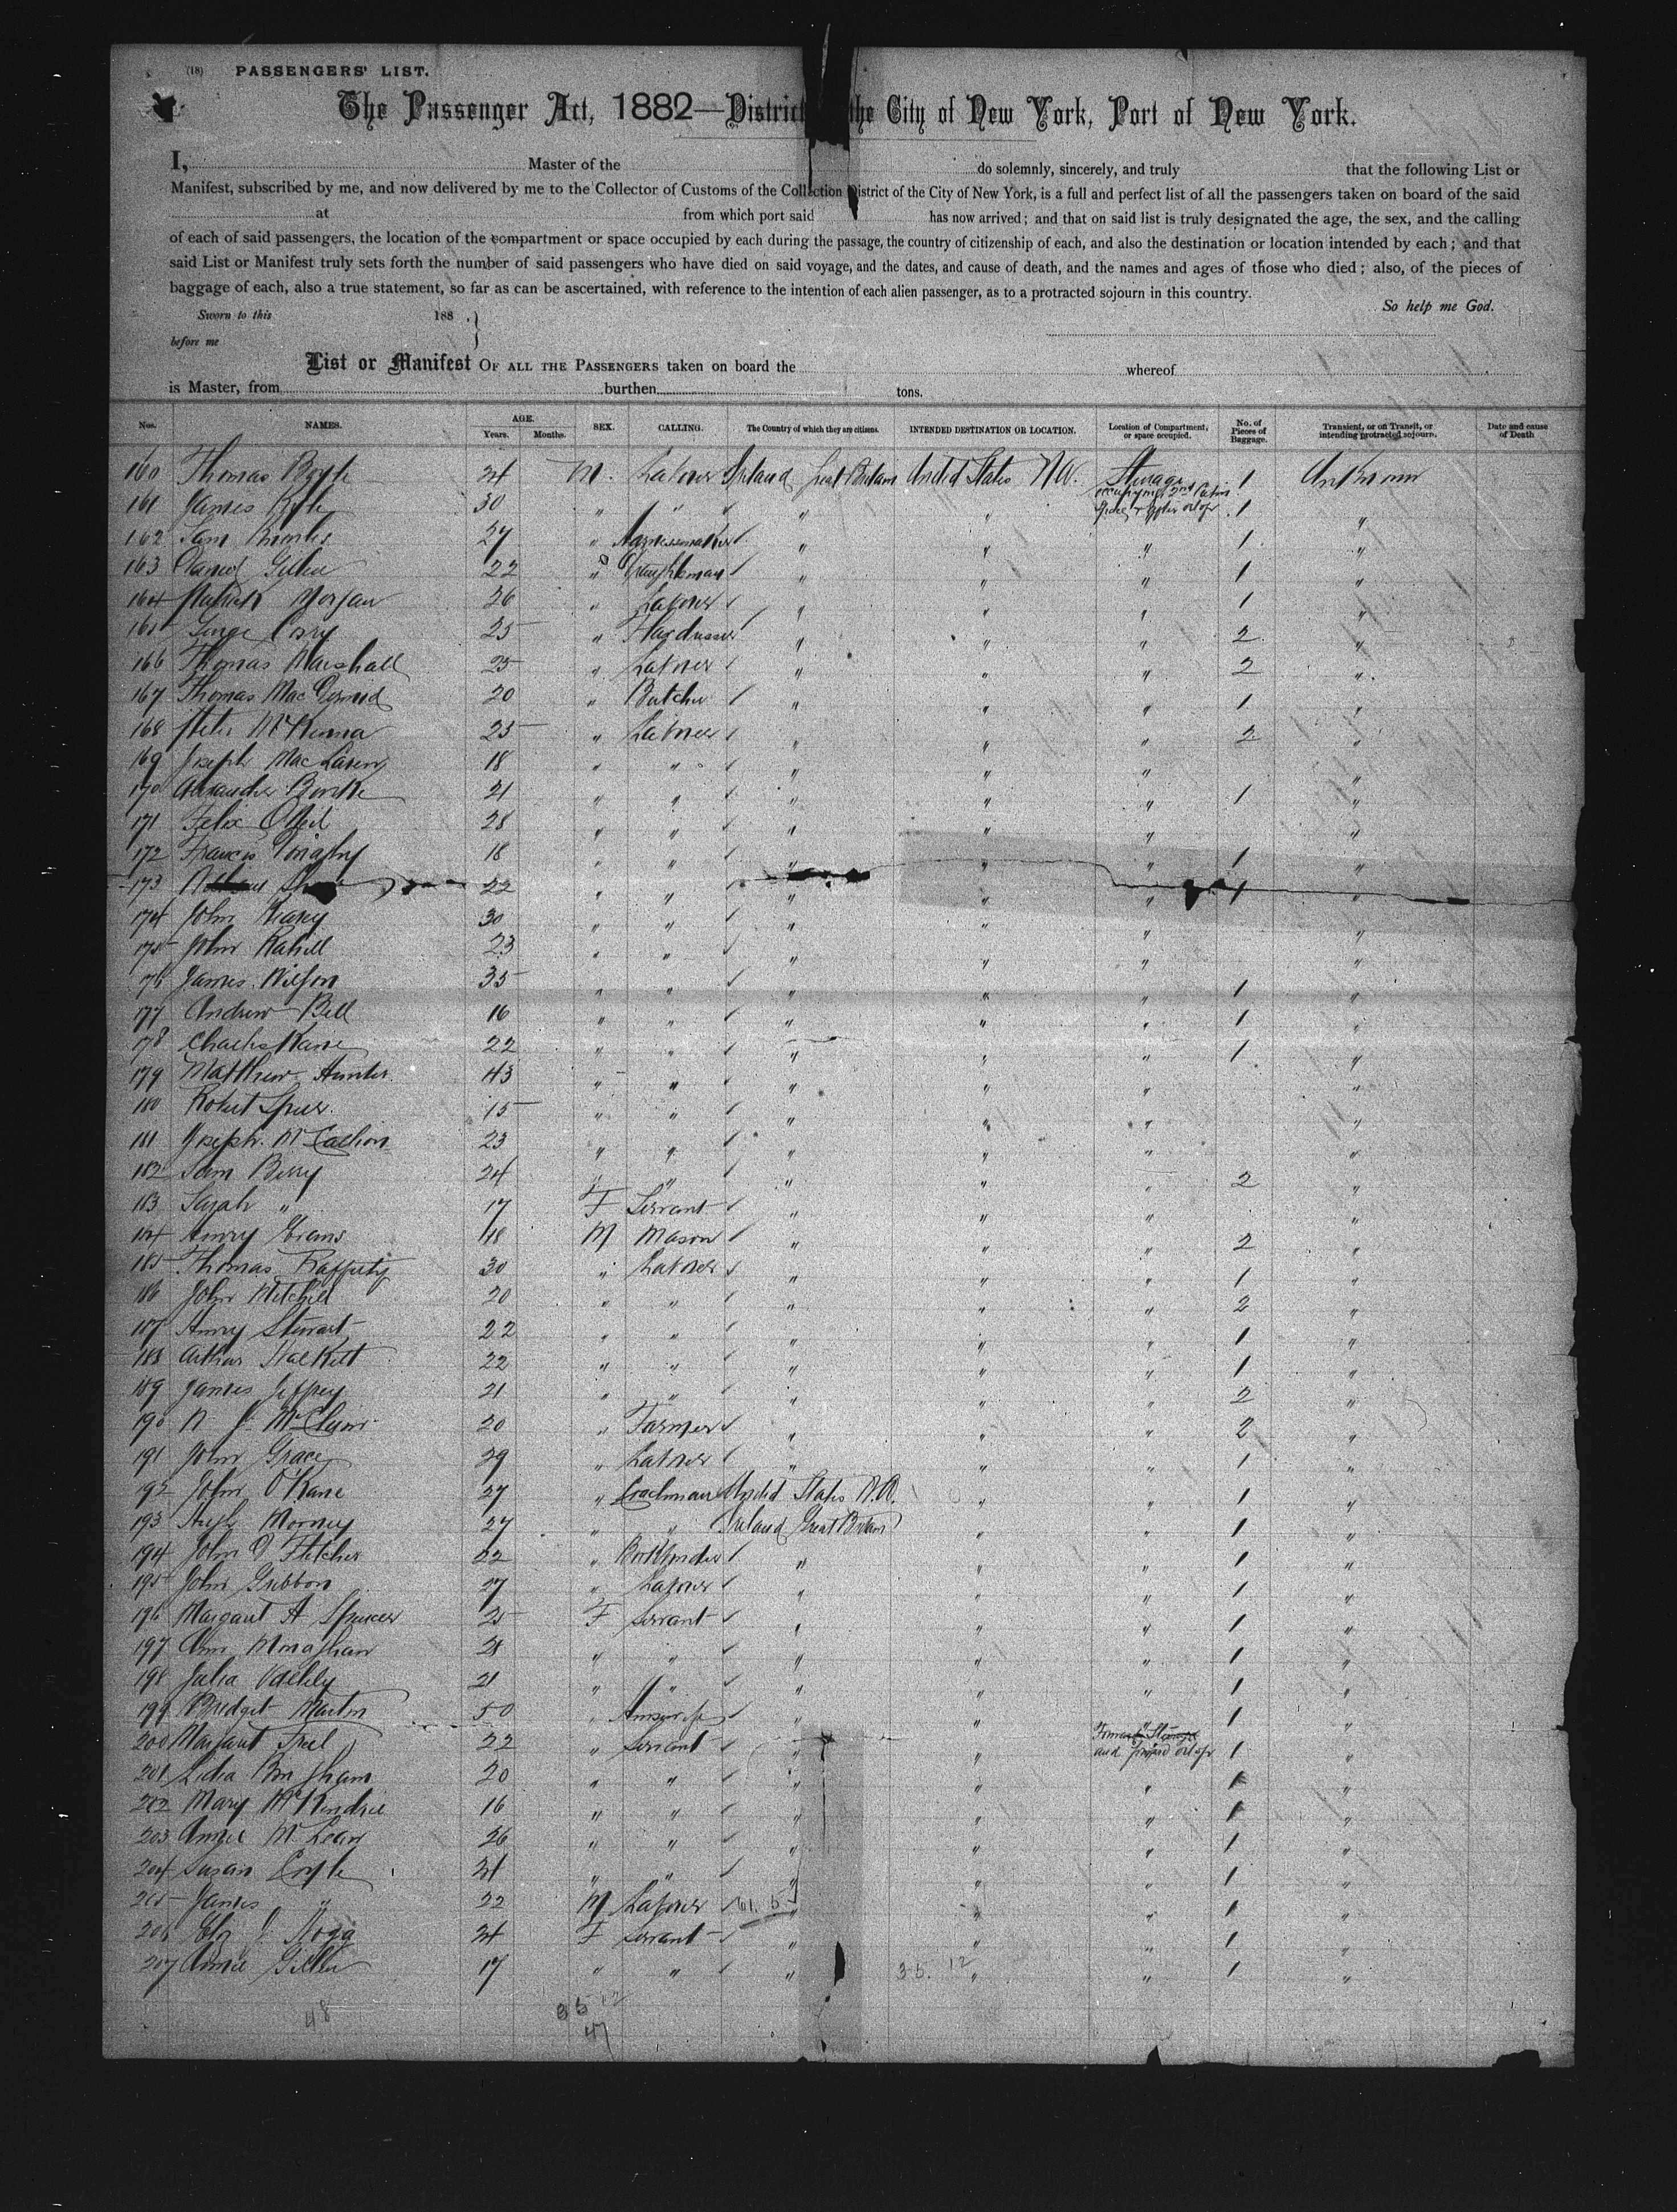 (18) PASSENGERS' LIST.
The Passenger Act, 1882—District the City of New York, Port of New York.
I, Master of the do solemnly, sincerely, and truly that the following List or
Manifest, subscribed by me, and now delivered by me to the Collector of Customs of the Collection District of the City of New York, is a full and perfect list of all the passengers taken on board of the said
at from which port said has now arrived; and that on said list is truly designated the age, the sex, and the calling
of each of said passengers, the location of the compartment or space occupied by each during the passage, the country of citizenship of each, and also the destination or location intended by each; and that
said List or Manifest truly sets forth the number of said passengers who have died on said voyage, and the dates, and cause of death, and the names and ages of those who died; also, of the pieces of
baggage of each, also a true statement, so far as can be ascertained, with reference to the intention of each alien passenger, as to a protracted sojourn in this country.
So help me God.
Sworn to this 188 . }
before me
List or Manifest OF ALL THE PASSENGERS taken on board the whereof
is Master, from burthen tons.
Nos. NAMES. AGE. Years. Months. SEX. CALLING. The Country of which they are citizens. INTENDED DESTINATION OR LOCATION. Location of Compartment, or space occupied. No. of Pieces of Baggage. Transient, or on Transit, or intending protracted sojourn. Date and cause of Death
160 Thomas Boyle 24 M. Laborer Ireland Great Britain United States N.A. Steerage 1 Unknown
161 James Kyle 30 " " " " occupying 2nd Cabin 1 "
162 Sam 27 " Harnessmaker " " " 1 "
163 Daniel Gillen 22 " " " " 1 "
164 Patrick Morgan 26 " Laborer " " " 1 "
165 George Corry 25 " " " " 2 "
166 Thomas Marshall 25 " Laborer " " " 2 "
167 Thomas Mac 20 " Butcher " " " 1 "
168 Peter McKenna 25 " Laborer " " " 2 "
169 Joseph Mac Laren 18 " " " " " "
170 Alexander 21 " " " " " 1 "
171 Felix O'Neil 28 " " " " " "
172 Francis 18 " " " " " 1 "
173 22 " " " " " 1 "
174 John Keany 30 " " " " " "
175 John Kahill 23 " " " " " "
176 James Wilson 35 " " " " " 1 "
177 Andrew Bell 16 " " " " " 1 "
178 Charles Kane 22 " " " " " 1 "
179 Matthew Hunter 43 " " " " " "
180 Robert Speer 15 " " " " " "
181 Joseph McCachon 23 " " " " " "
182 Sam Berry 24 " " " " " 2 "
183 Sarah " 17 F Servant " " " "
184 Henry Evans 48 M Mason " " " 2 "
185 Thomas Rafferty 30 " Laborer " " " 1 "
186 John Mitchell 20 " " " " " 2 "
187 Henry Stewart 22 " " " " " 1 "
188 Arthur Halkett 22 " " " " " 1 "
189 James Jeffrey 21 " " " " " 2 "
190 20 " Farmer " " " 2 "
191 John Grace 29 " Laborer " " " 1 "
192 John O'Kane 27 " Coachman United States N.A. " " 1 "
193 Hugh Mooney 27 " " Ireland Great Britain " " 1 "
194 John Fletcher 22 " Bookbinder " " " 1 "
195 John Gribbon 27 " Laborer " " " 1 "
196 Margaret A Spencer 25 F Servant " " " 1 "
197 Ann Monaghan 21 " " " " " 1 "
198 Julia 21 " " " " " 1 "
199 Bridget Martin 50 " " " " 1 "
200 Margaret Freel 22 " Servant " " 1 "
201 Lidia Bingham 20 " " " " " 1 "
202 Mary McKendrie 16 " " " " " 1 "
203 McLean 26 " " " " " 1 "
204 Susan Coyle 21 " " " " " 1 "
205 James " 22 M Laborer 61. 5 " " " 1 "
206 24 F Servant " " " 1 "
207 Annie Gillen 17 " " " 35. 12 " " 1 "
48 35 12
47